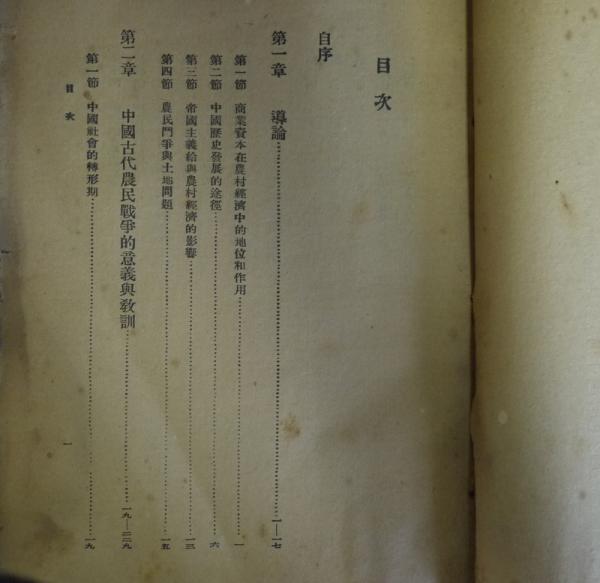 目次
自序
第一章 導論……一—一七
第一節 商業資本在農村經濟中的地位和作用……一
第二節 中國歷史發展的途徑……六
第三節 帝國主義給與農村經濟的影響……一三
第四節 農民鬥爭與土地問題……一五
第二章 中國古代農民戰爭的意義與敎訓……一九—二九
第一節 中國社會的轉形期……一九
目次 一